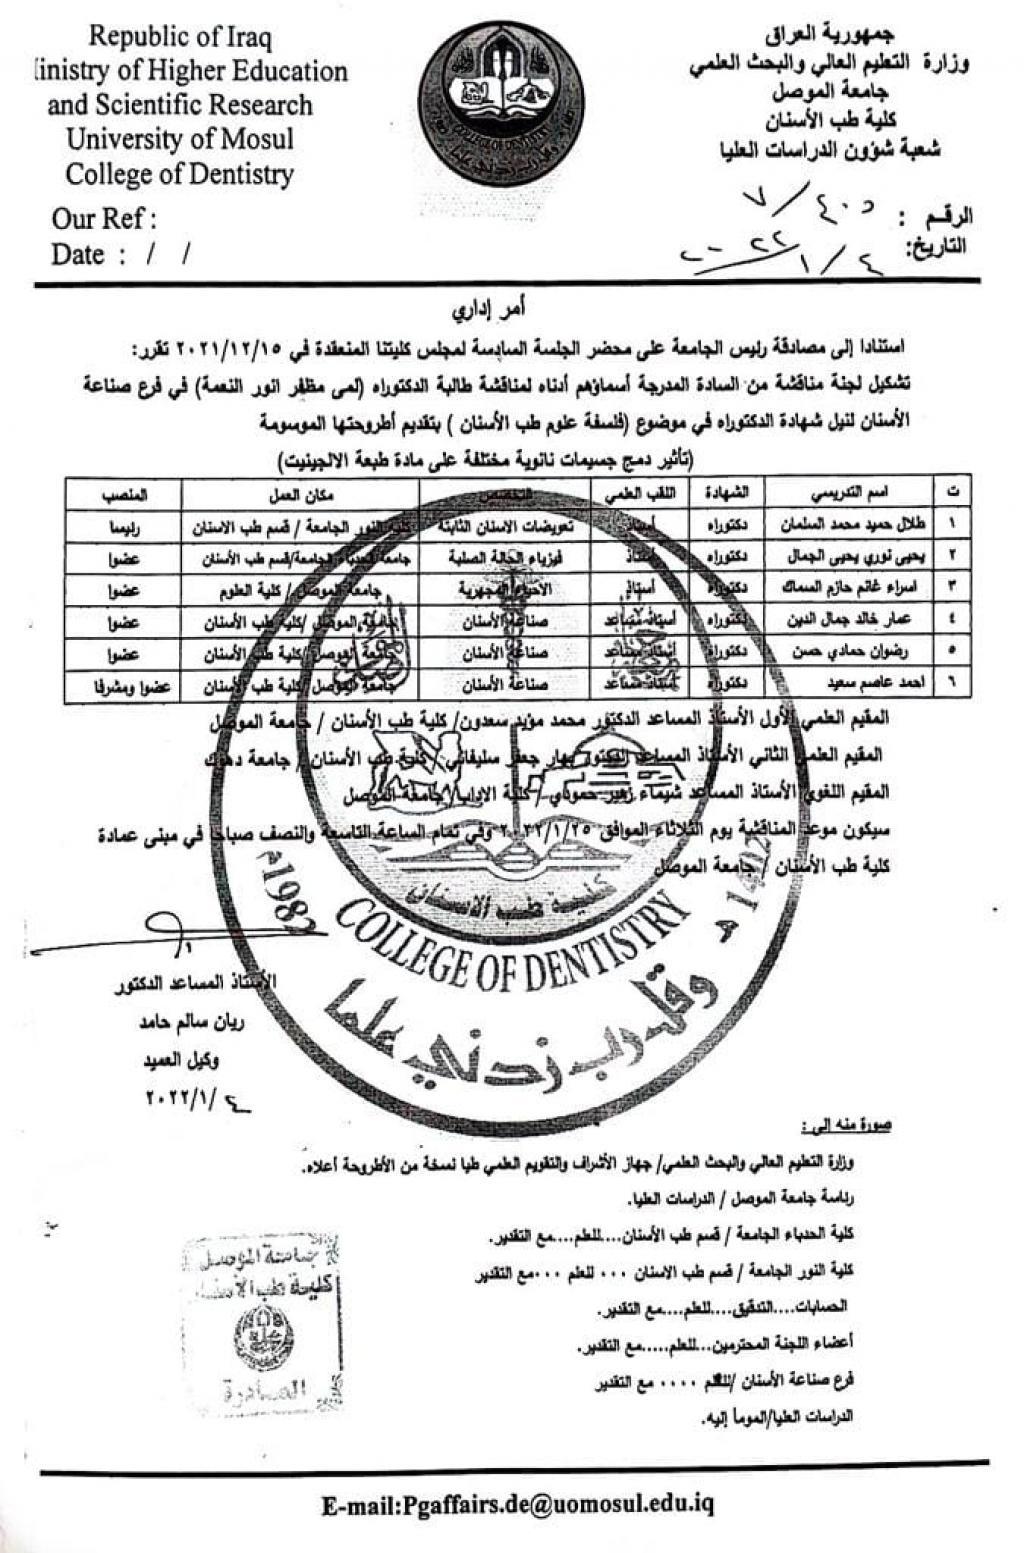 Republic of Iraq
inistry of Higher Education
and Scientific Research
University of Mosul
College of Dentistry
Our Ref :
Date : / /
جمهورية العراق
وزارة التعليم العالي والبحث العلمي
جامعة الموصل
كلية طب الأسنان
شعبة شؤون الدراسات العليا
الرقم : ٧/٤٠٥
التاريخ: ٢٠٢٢/١/٤
أمر إداري
استنادا إلى مصادقة رئيس الجامعة على محضر الجلسة السادسة لمجلس كليتنا المنعقدة في ٢٠٢١/١٢/١٥ تقرر:
تشكيل لجنة مناقشة من السادة المدرجة أسماؤهم أدناه لمناقشة طالبة الدكتوراه (لمى مظفر انور النعمة) في فرع صناعة
الأسنان لنيل شهادة الدكتوراه في موضوع (فلسفة علوم طب الأسنان ) بتقديم أطروحتها الموسومة
(تأثير دمج جسيمات نانوية مختلفة على مادة طبعة الالجينيت)
ت اسم التدريسي الشهادة اللقب العلمي التخصص مكان العمل المنصب
١ طلال حميد محمد السلمان دكتوراه أستاذ تعويضات الاسنان الثابتة كلية النور الجامعة / قسم طب الاسنان رئيسا
٢ يحيى نوري يحيى الجمال دكتوراه أستاذ فيزياء الحالة الصلبة الجامعة/قسم طب الأسنان عضوا
٣ اسراء غانم حازم السماك دكتوراه أستاذ الاحياء المجهرية جامعة الموصل/ كلية العلوم عضوا
٤ عمار خالد جمال الدين دكتوراه أستاذ مساعد صناعة الأسنان جامعة الموصل /كلية طب الأسنان عضوا
٥ رضوان حمادي حسن دكتوراه أستاذ مساعد صناعة الأسنان جامعة الموصل /كلية طب الأسنان عضوا
٦ احمد عاصم سعيد دكتوراه أستاذ مساعد صناعة الأسنان جامعة الموصل /كلية طب الأسنان عضوا ومشرفا
المقيم العلمي الأول الأستاذ المساعد الدكتور محمد مؤيد سعدون/ كلية طب الأسنان / جامعة الموصل
المقيم العلمي الثاني الأستاذ المساعد الدكتور بهار جعفر سليفاني /كلية طب الأسنان / جامعة دهوك
المقيم اللغوي الأستاذ المساعد شيماء زهير حمودي / كلية الاداب/ جامعة الموصل
سيكون موعد المناقشة يوم الثلاثاء الموافق ٢٠٢٢/١/٢٥ وفي تمام الساعة التاسعة والنصف صباحا في مبنى عمادة
كلية طب الأسنان / جامعة الموصل
كلية طب الاسنان
1982م
COLLEGE OF DENTISTRY
وقل رب زدني علما
الأستاذ المساعد الدكتور
ريان سالم حامد
وكيل العميد
٢٠٢٢/١/٤
صورة منه إلى :
وزارة التعليم العالي والبحث العلمي/ جهاز الأشراف والتقويم العلمي طيا نسخة من الأطروحة أعلاه.
رئاسة جامعة الموصل / الدراسات العليا.
كلية الحدباء الجامعة / قسم طب الأسنان....للعلم....مع التقدير.
كلية النور الجامعة / قسم طب الاسنان ... للعلم ...مع التقدير
الحسابات....التدقيق....للعلم....مع التقدير.
أعضاء اللجنة المحترمين...للعلم.....مع التقدير.
فرع صناعة الأسنان /للعلم .... مع التقدير
الدراسات العليا/المومأ إليه.
جامعة الموصل
كلية طب الأسنان
الصادرة
E-mail:Pgaffairs.de@uomosul.edu.iq